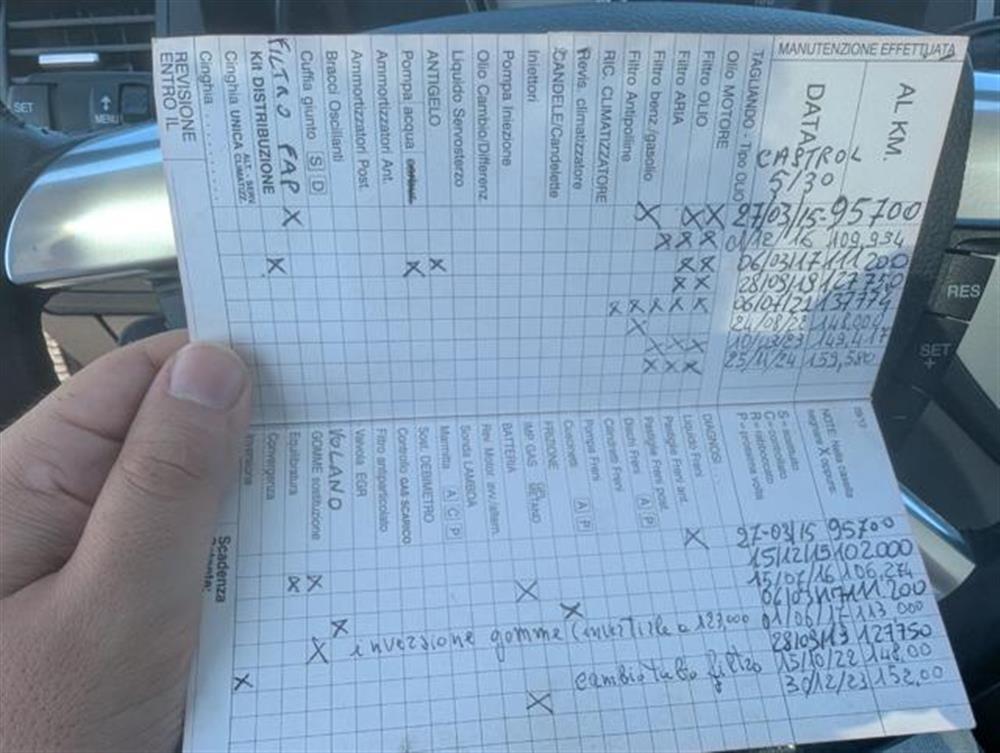 MANUTENZIONE EFFETTUATA
AL KM.
DATA
CASTROL
5/30
TAGLIANDO - Tipo OLIO
Olio MOTORE
Filtro OLIO
Filtro ARIA
Filtro benz/gasolio
Filtro Antipolline
RIC. CLIMATIZZATORE
Revis. climatizzatore
CANDELE/Candelette
Iniettori
Pompa Iniezione
Olio Cambio/Differenz.
Liquido Servosterzo
ANTIGELO
Pompa acqua
Ammortizzatori Ant.
Ammortizzatori Post.
Bracci Oscillanti
Cuffia giunto S D
FILTRO FAP X
KIT DISTRIBUZIONE
Cinghia UNICA ALT. - SERV. CLIMATIZZ.
Cinghia
REVISIONE
ENTRO IL
27/03/15-95700
01/12/16 109,934
06/03/17 111200
28/03/19 127750
06/07/21 137774
24/08/22 148.004
23/11/24 159,580
NOTE: Nella casella
segnare X oppure:
S = sostituito
C = controllato
R = rabboccato
P = prossima volta
DIAGNOSI
Liquido Freni
Pastiglie Freni ant.
Pastiglie Freni post.
Dischi Freni A P
Cilindretti Freni
Pompa Freni
Cuscinetti A P
FRIZIONE
IMP. GAS GPL METANO
BATTERIA
Rev. Motor. avv./altern.
Sonda LAMBDA
Marmitta A C P
Sost. DEBIMETRO
Controllo GAS SCARICO
Filtro antiparticolato
Valvola EGR
VOLANO
GOMME sostituzione
Equilibratura
Convergenza
Inversione
Scadenza
27-03/15 95700
15/12/15 102.000
15/07/16 106,274
06/03/17 111.200
01/06/17 113 000
inversione gomme (invertirle a 123,000
28/03/19 127750
cambio tubo filtro 15/10/22 148,00
30/12/23 152,00